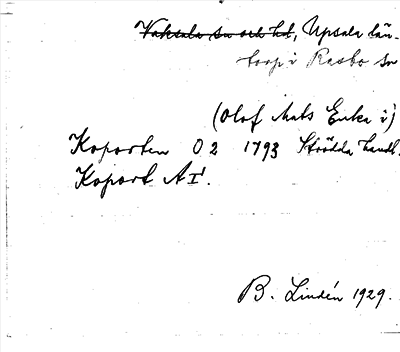 Vaksala sn och hd, Upsala län.
torp i Rasbo sn
(Olof Mats Enka i)
Koporten O 2 1793 Strödda handl.
Koport A I.
B. Lindén 1929.